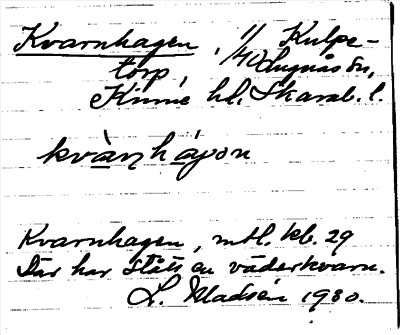 Kvarnhagen, 1/1 Kulpe-
torp, 1/40 Hugnås sn,
Kinne hd. Skarab. l.
kvà̱ṇhá̱gon
Kvarnhagen, mtl. kb. 29
Där har stått en väderkvarn.
L. Madsén 1930.